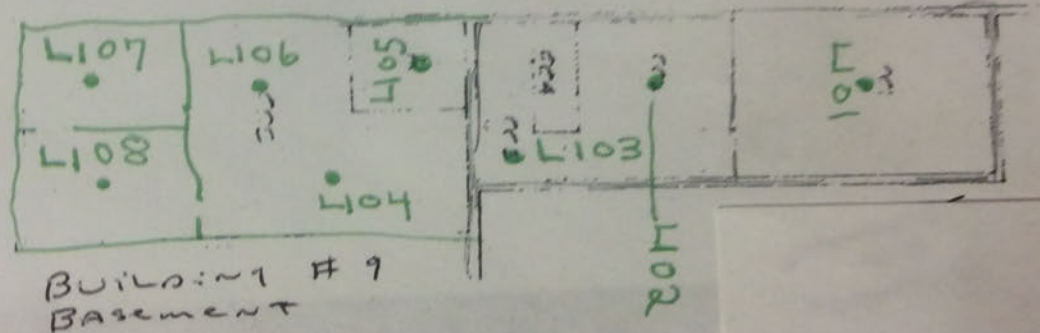 L107
L106
L105
L101
L108
L103
L104
L102
BUILDING # 9
BASEMENT